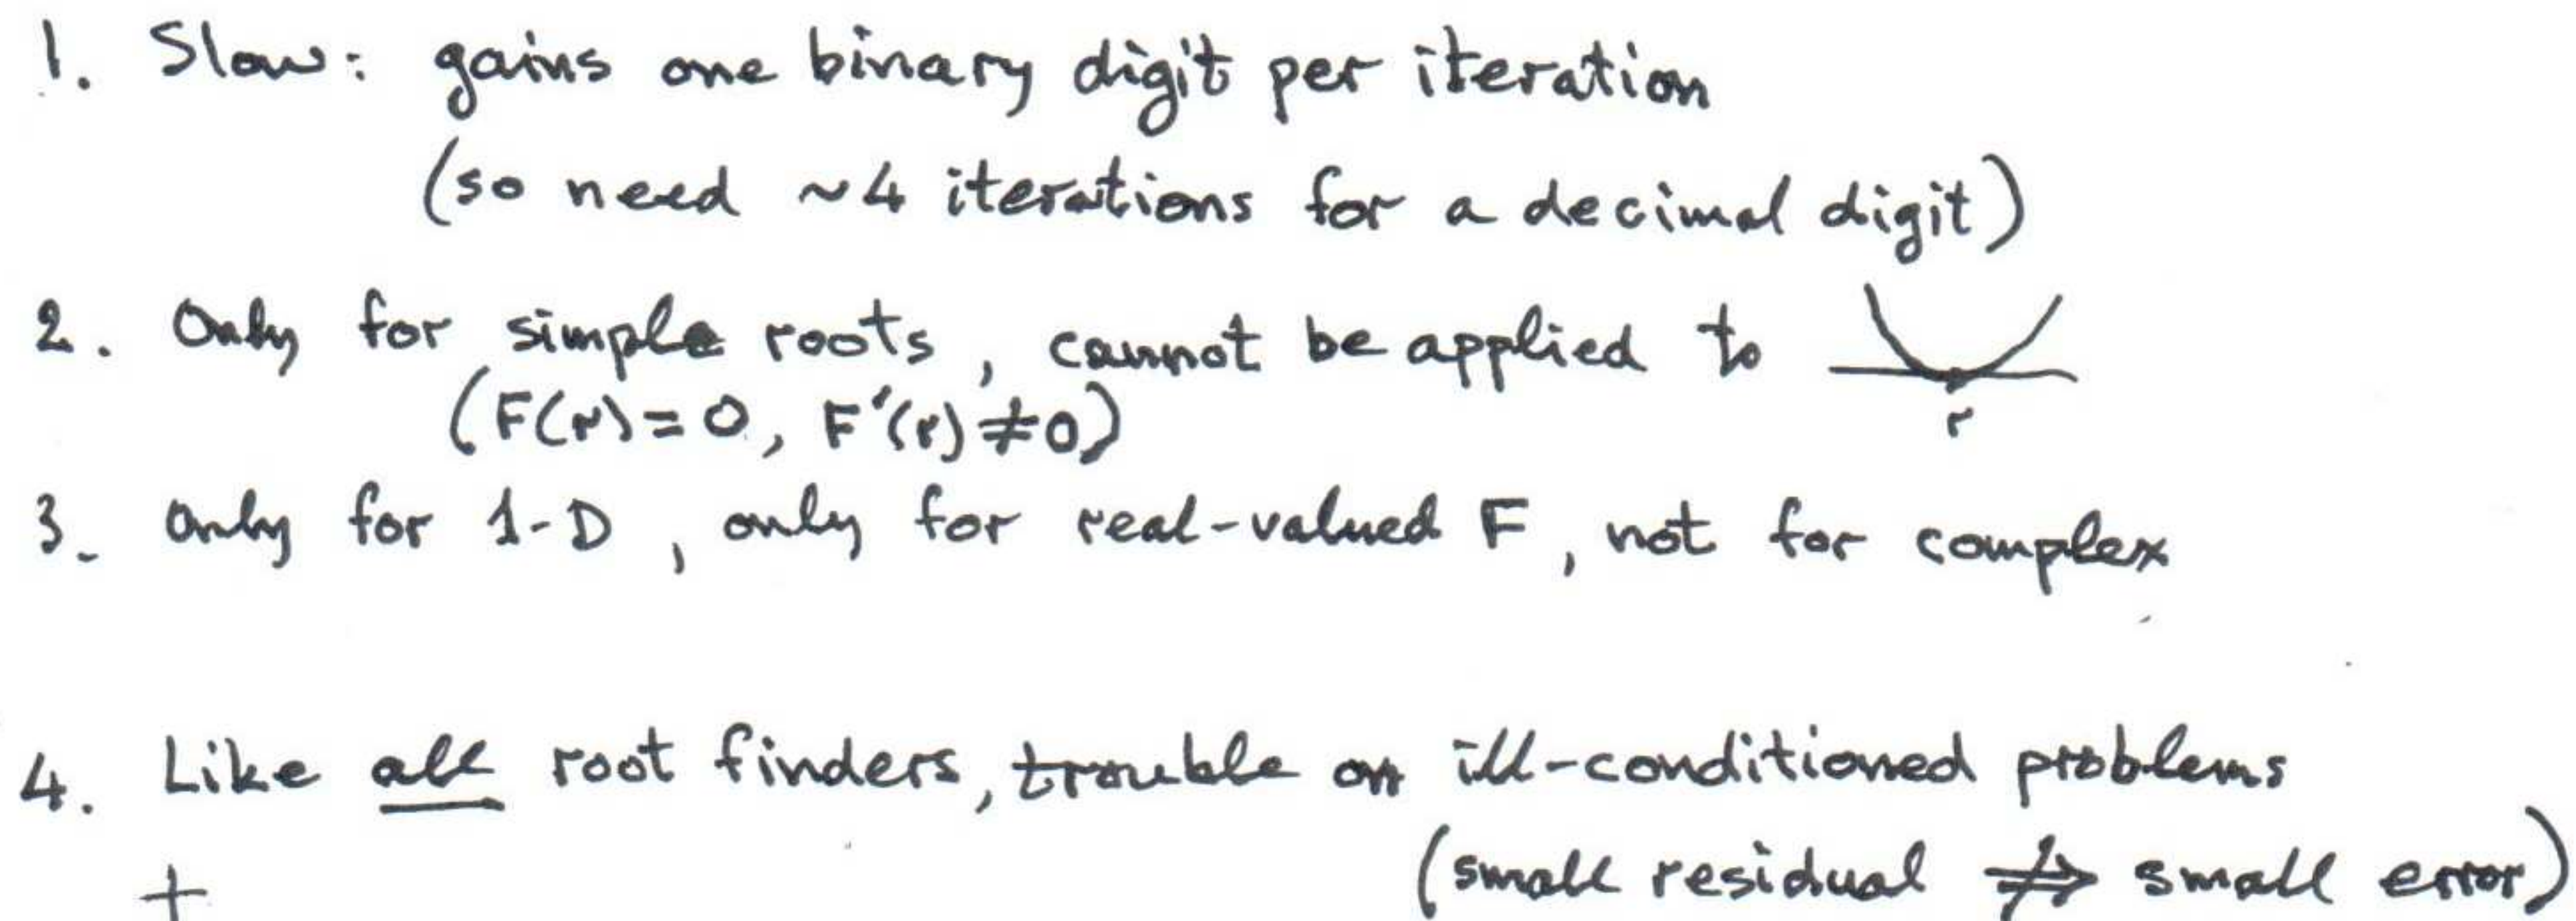 1. Slow: gains one binary digit per iteration
(so need ~4 iterations for a decimal digit)
2. Only for simple roots, cannot be applied to
r
(F(r)=0, F'(r)≠0)
3. Only for 1-D, only for real-valued F, not for complex
4. Like all root finders, trouble on ill-conditioned problems
+ (small residual ⇏ small error)